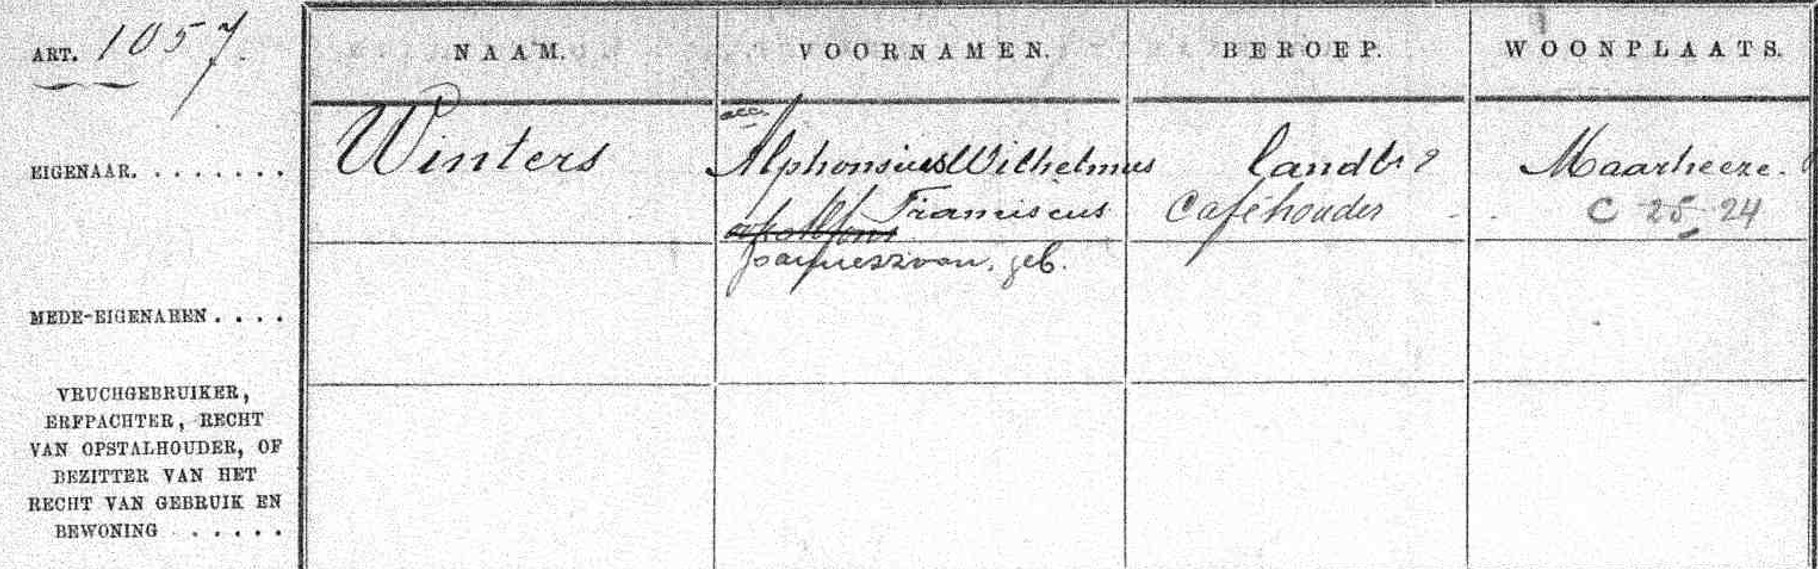 ART. 1057.
NAAM. VOORNAMEN. BEROEP. WOONPLAATS.
acc.
EIGENAAR. . . . . . . . Winters Alphonsius Wilhelmus landbr Maarheeze.
Franciscus Caféhouder C 25 24
Jacqueszoon, geb.
MEDE-EIGENAREN . . . .
VRUCHGEBRUIKER,
ERFPACHTER, RECHT
VAN OPSTALHOUDER, OF
BEZITTER VAN HET
RECHT VAN GEBRUIK EN
BEWONING . . . . .